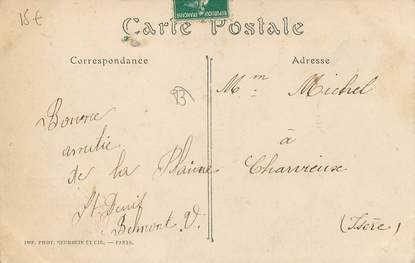 15€
Carte Postale
Correspondance
Adresse
Bonne
amitié
de la Plaine
St Denis
Belmont V.
B
Mm Michel
à
Charvieux
(Isère)
IMP. PHOT. NEURDEIN ET CIE. — PARIS.